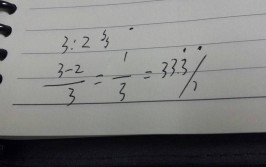 3:2
3-2/3 = 1/3 = 33.3